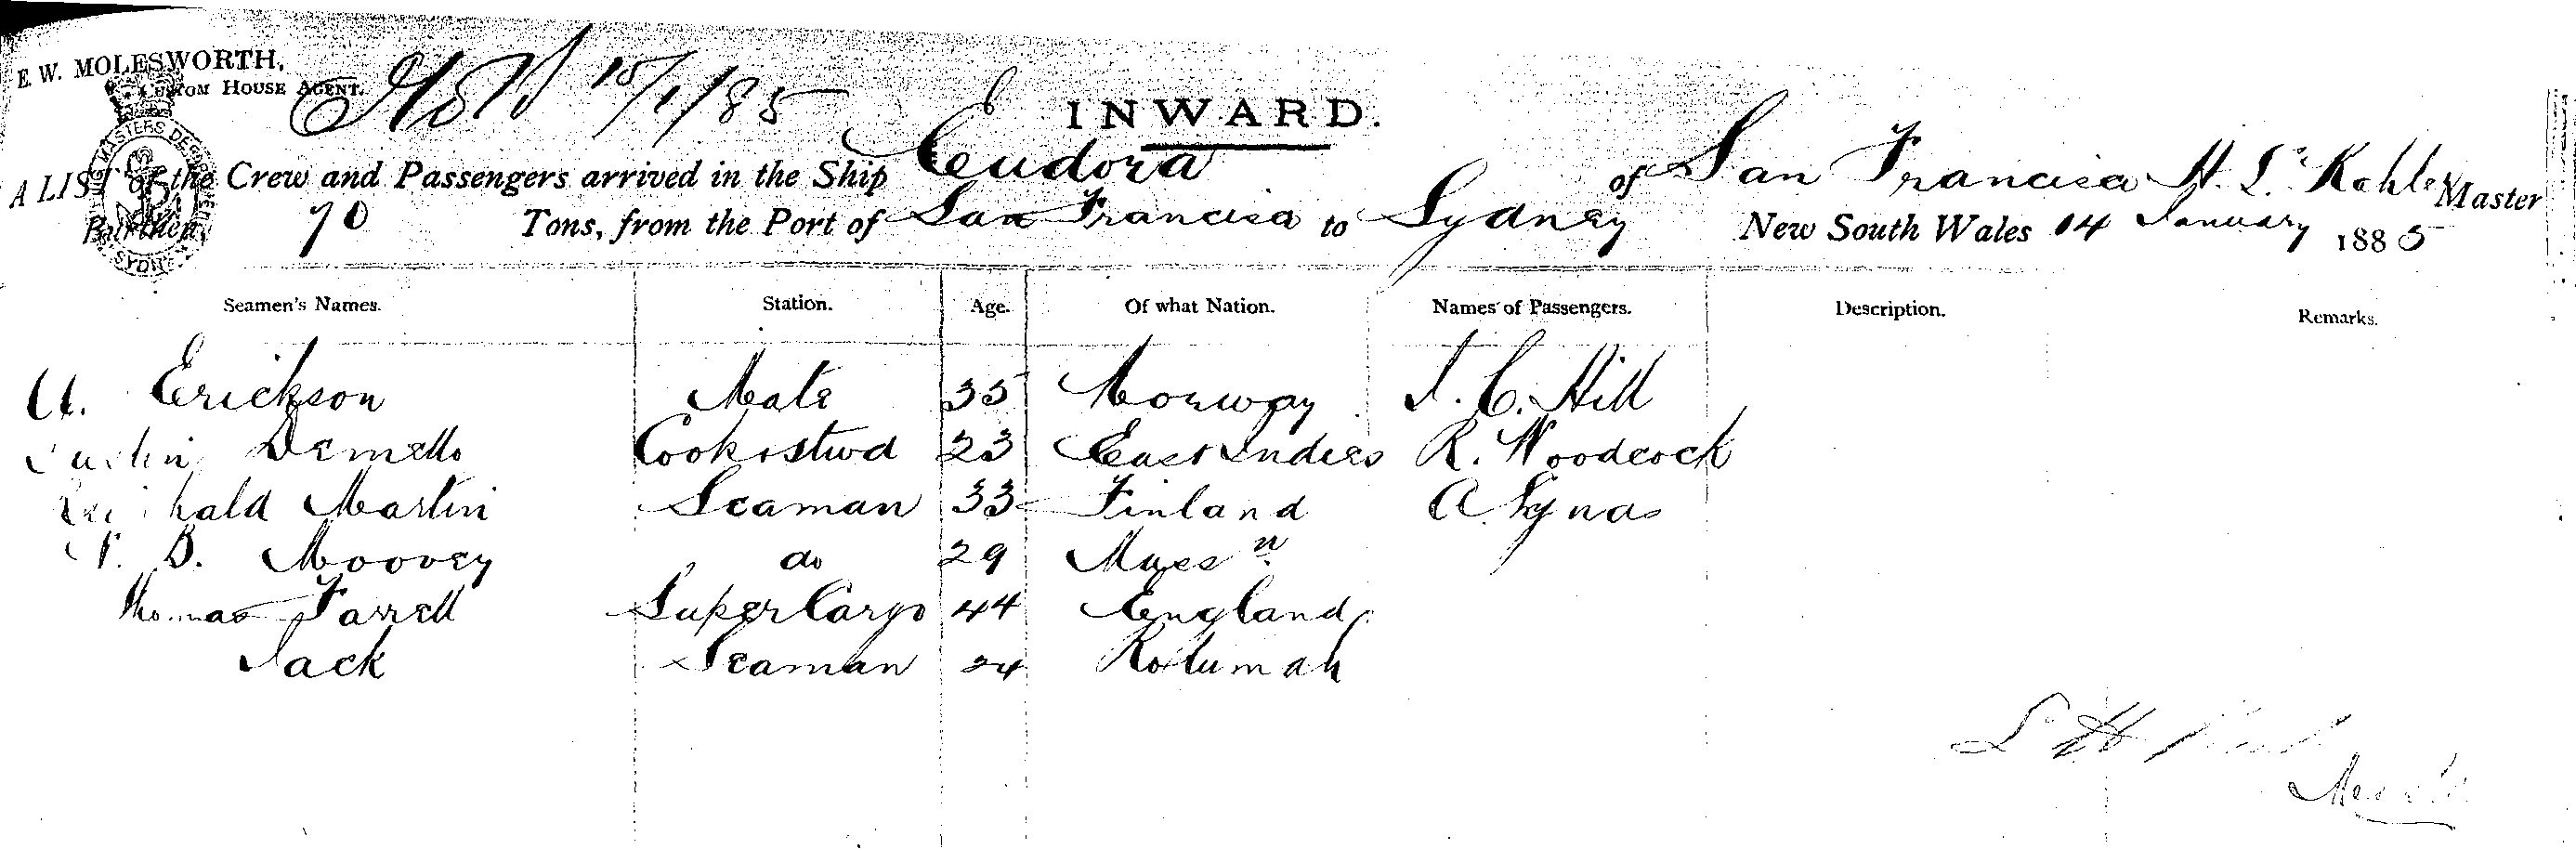 E. W. MOLESWORTH,
CUSTOM HOUSE AGENT.
15/1/85
INWARD.
A LIST of the Crew and Passengers arrived in the Ship Eudora of San Francisca H. L. Kohler Master
Burthen, 70 Tons, from the Port of San Francisca to Sydney New South Wales 14 January 1885
Seamen's Names. Station. Age. Of what Nation. Names of Passengers. Description. Remarks.
A. Erickson Mate 35 Norway J. C. Hill
Demello Cook & stwd 23 East Indies R. Woodcock
Martin Seaman 33 Finland A.
B. Moovey do 29
Thomas Farrell Super Cargo 44 England
Jack Seaman 24 Rotumah